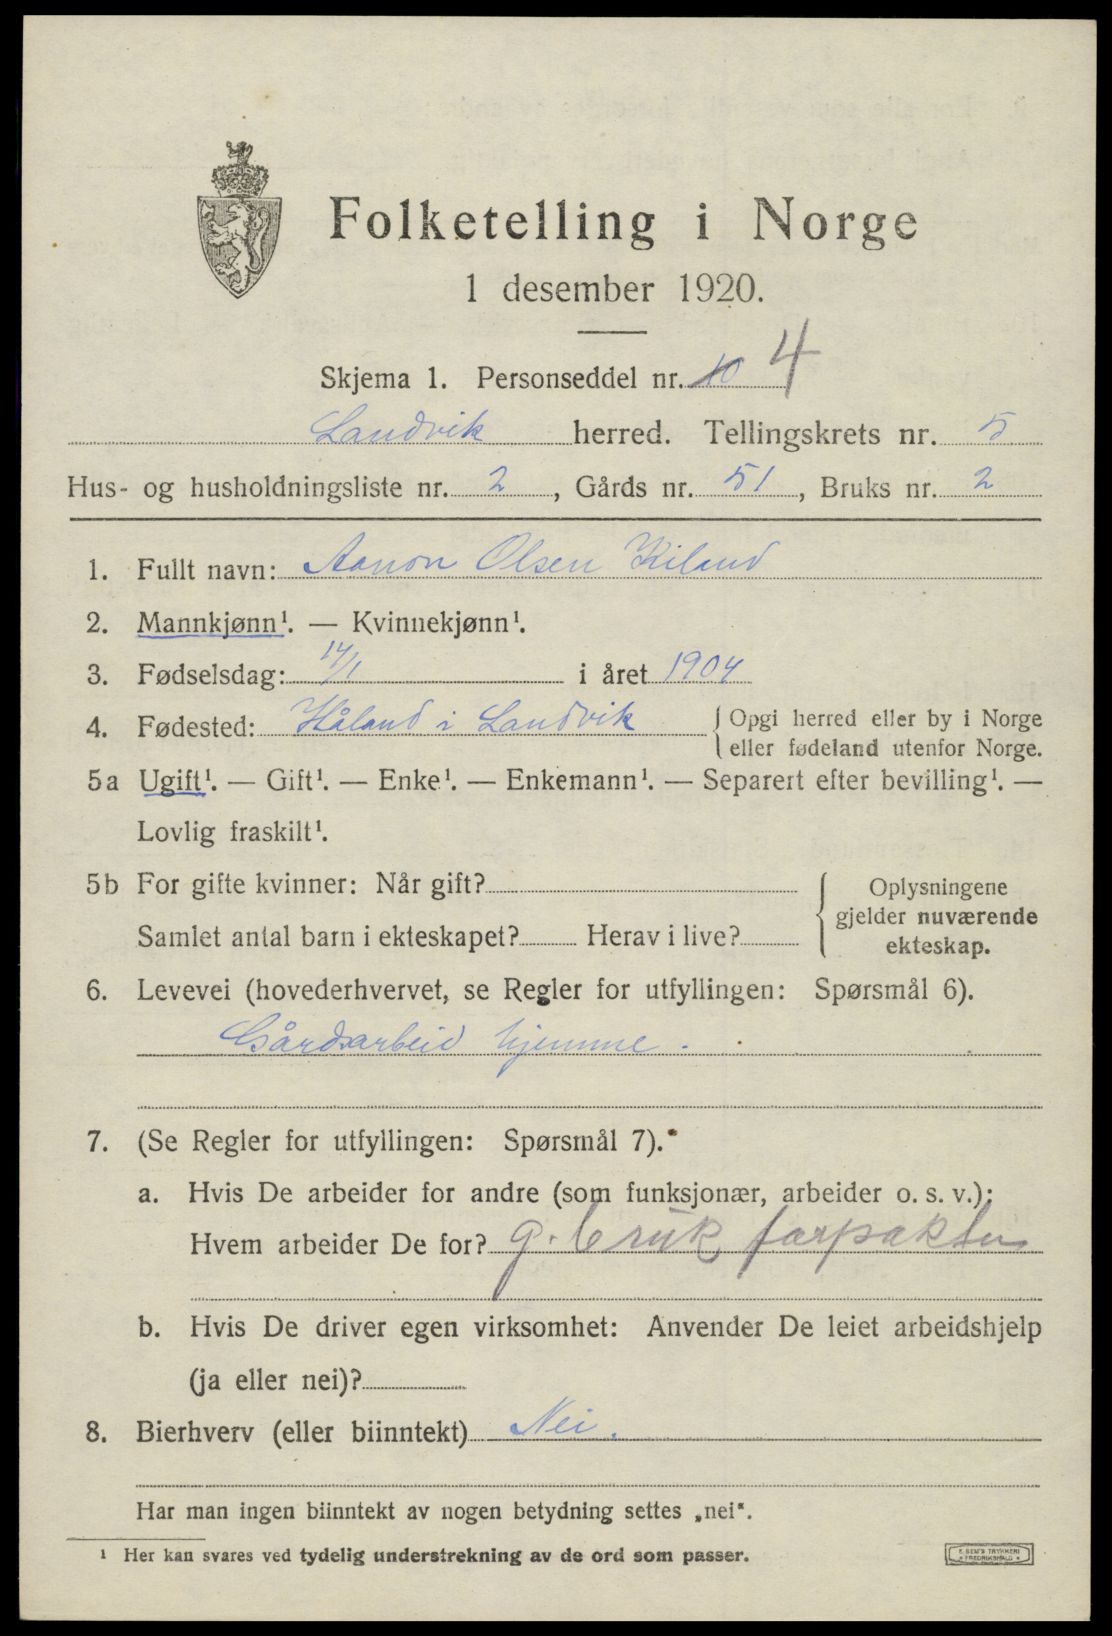 Folketelling i Norge
1 desember 1920.
Skjema 1. Personseddel nr. 10 4
Landvik herred. Tellingskrets nr. 5
Hus- og husholdningsliste nr. 2, Gårds nr. 51, Bruks nr. 2
1. Fullt navn: Aanon Olsen Kiland
2. Mannkjønn¹. — Kvinnekjønn¹.
3. Fødselsdag: 14/1 i året 1904
4. Fødested: Håland i Landvik { Opgi herred eller by i Norge
eller fødeland utenfor Norge.
5a Ugift¹. — Gift¹. — Enke¹. — Enkemann¹. — Separert efter bevilling¹. —
Lovlig fraskilt¹.
5b For gifte kvinner: Når gift?
Samlet antal barn i ekteskapet? Herav i live?
{ Oplysningene
gjelder nuværende
ekteskap.
6. Levevei (hovederhvervet, se Regler for utfyllingen: Spørsmål 6).
Gårdsarbeid hjemme.
7. (Se Regler for utfyllingen: Spørsmål 7).
a. Hvis De arbeider for andre (som funksjonær, arbeider o. s. v.):
Hvem arbeider De for? g. bruk forpakter
b. Hvis De driver egen virksomhet: Anvender De leiet arbeidshjelp
(ja eller nei)?
8. Bierhverv (eller biinntekt) Nei.
Har man ingen biinntekt av nogen betydning settes „nei".
¹ Her kan svares ved tydelig understrekning av de ord som passer.
E. SEM'S TRYKKERI
FREDRIKSHALD